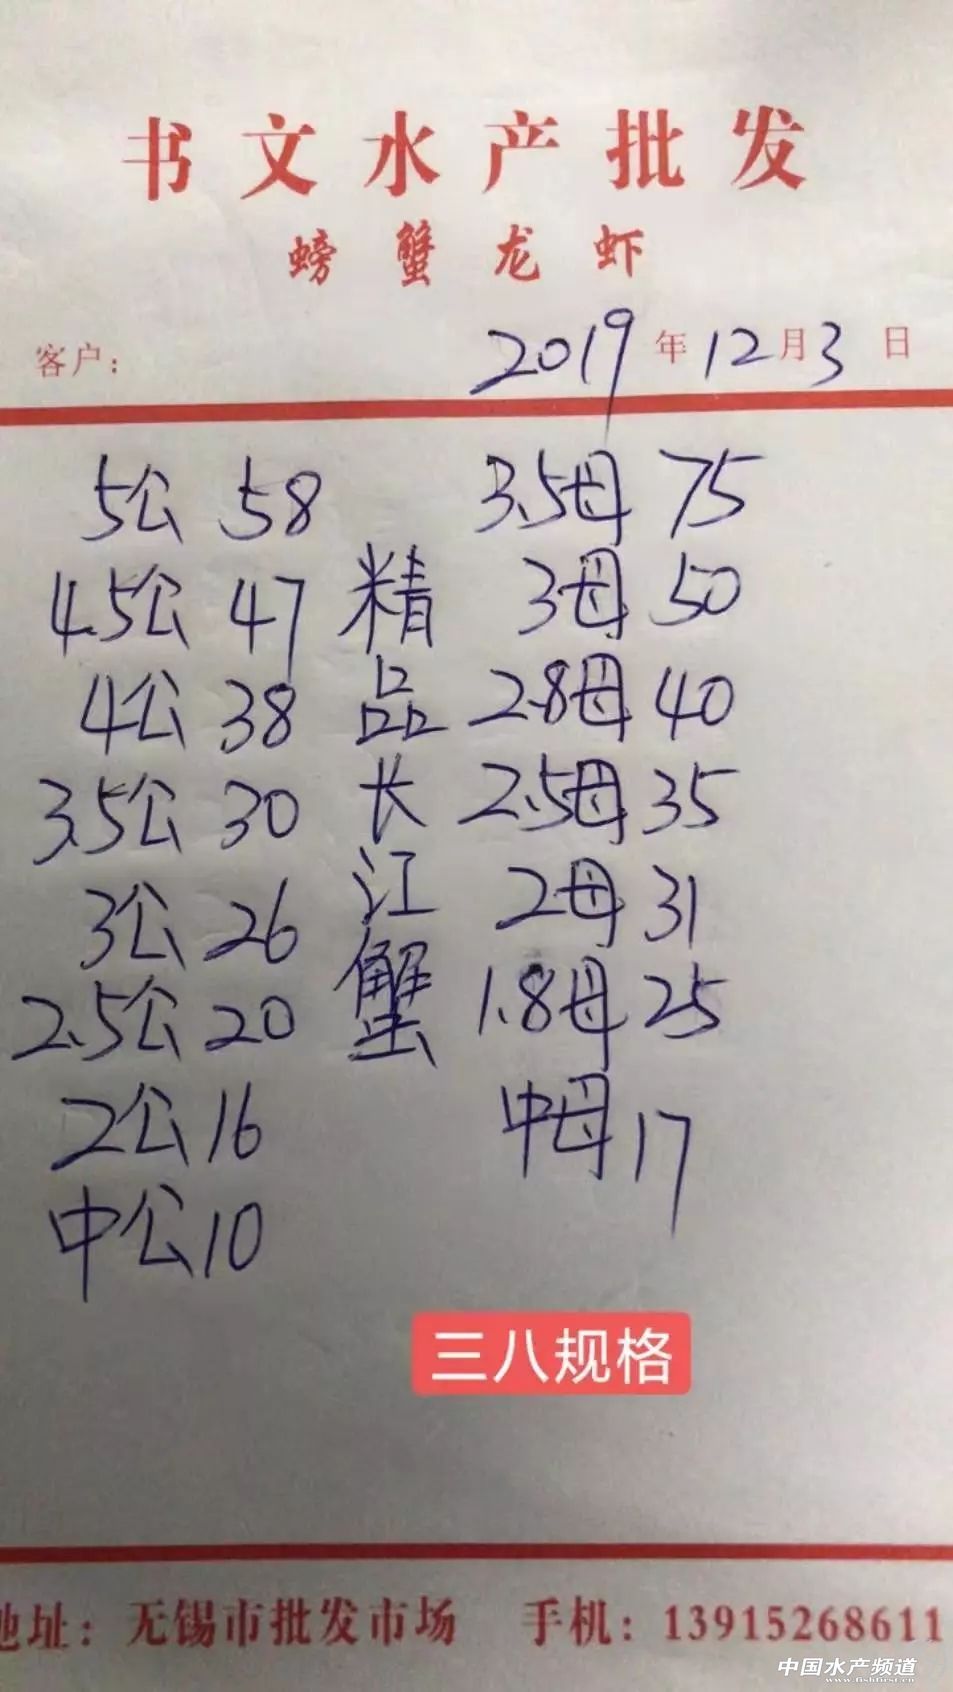 书文水产批发
螃蟹龙虾
客户： 2019年12月3日
5公 58 3.5母 75
4.5公 47 精 3母 50
4公 38 品 2.8母 40
3.5公 30 长 2.5母 35
3公 26 江 2母 31
2.5公 20 蟹 1.8母 25
2公 16 中母 17
中公 10
三八规格
地址：无锡市批发市场 手机：13915268611
中国水产频道
www.fishfirst.cn